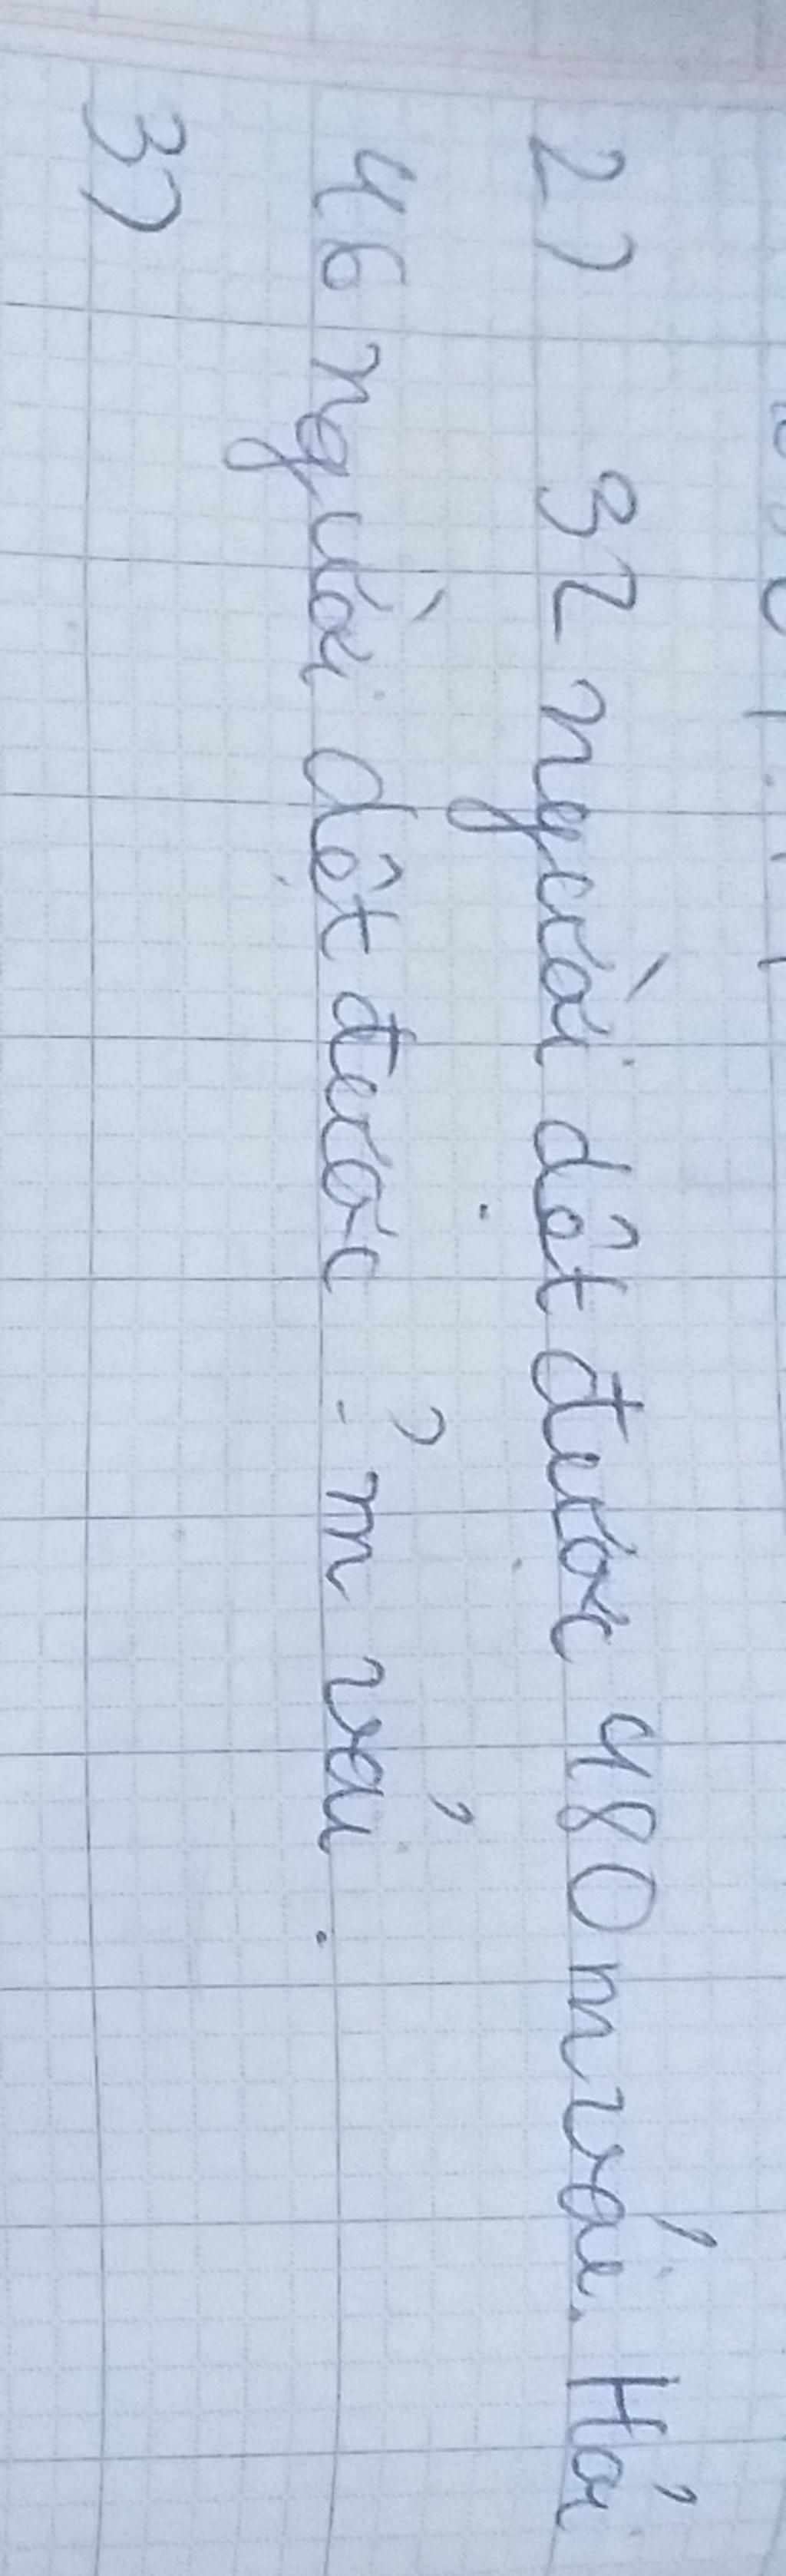 2) 32 người dệt được 480 m vải. Hỏi
46 người dệt được ? m vải.
3)